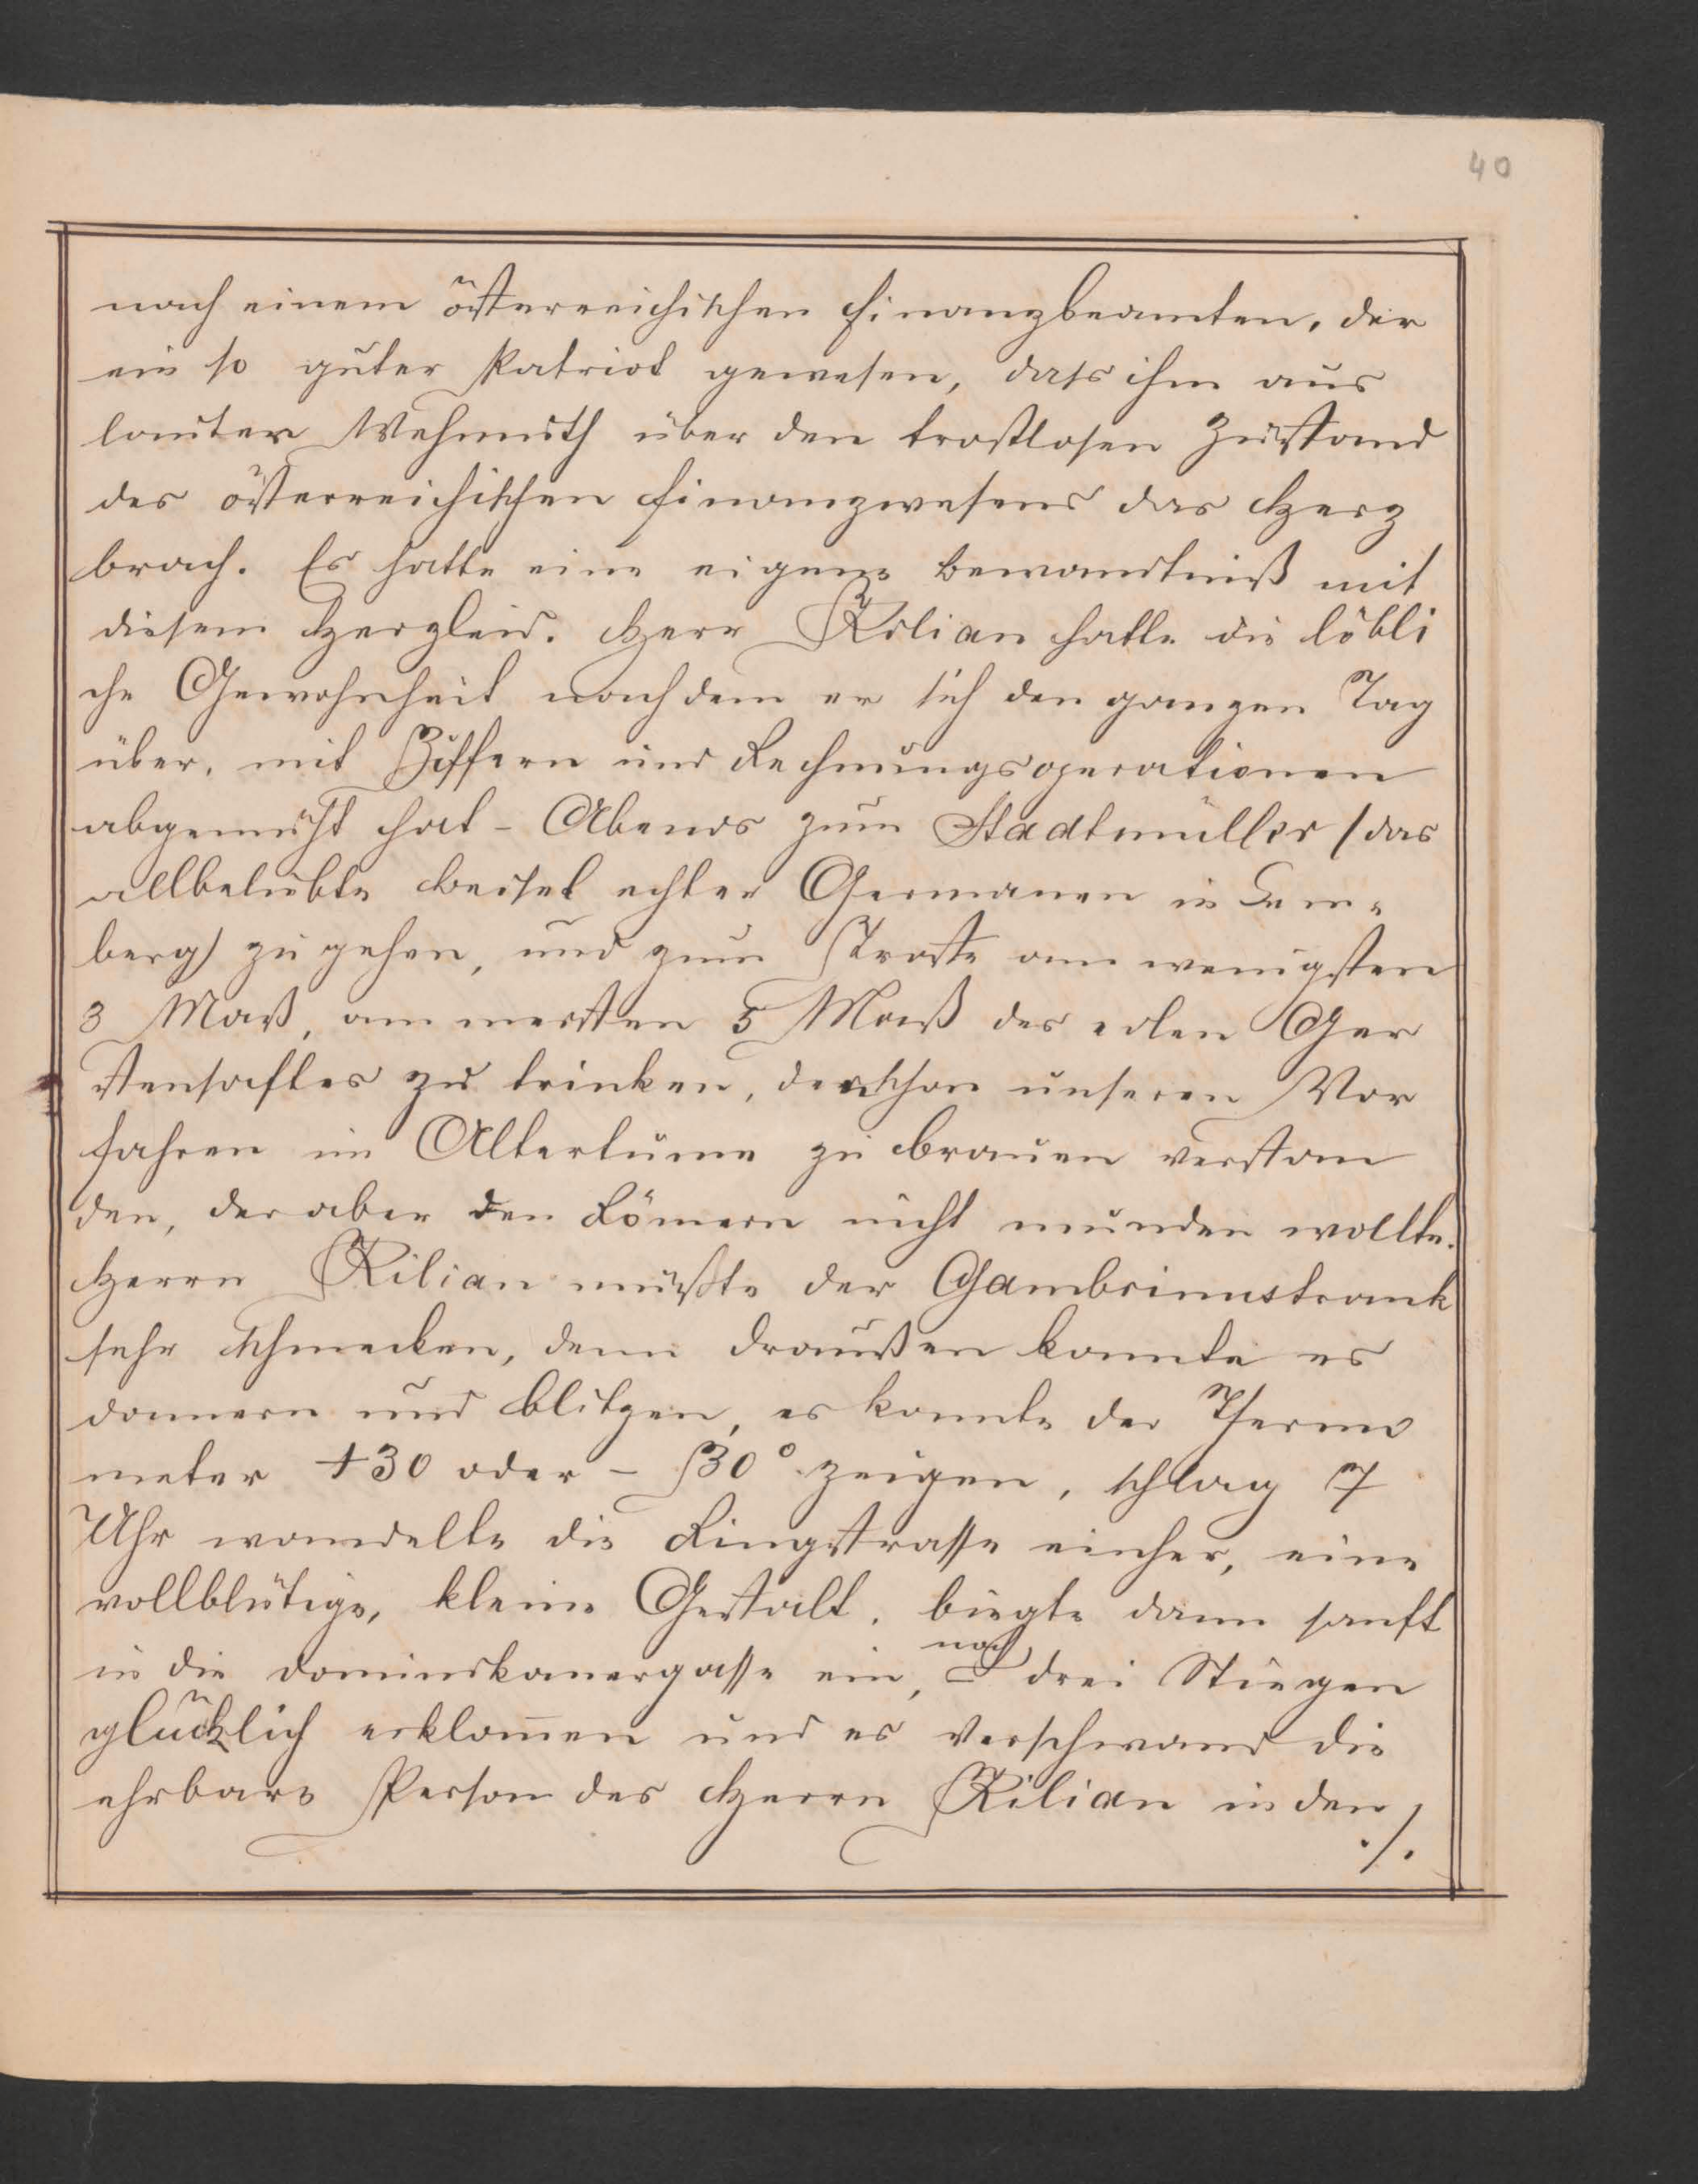 40
nach einem österreichischen Finanzbeamten, der
ein so guter Patriot gewesen, dass ihm aus
lauter Wehmuth über den trostlosen Zustand
des österreichischen Finanzwesens das Herz
brach. Es hatte eine eigene Bewandtniß mit
diesem Herzleid. Herr Kilian hatte die löbli
che Gewohnheit nachdem er sich den ganzen Tag
über, mit Ziffern und Rechnungsoperationen
abgemüht hat - Abends zum Stadtmüller (das
allbeliebte Beisel echter Germanen in Lem-
berg) zu gehen, und zum Troste am wenigsten
3 Maß, am meisten 5 Maß des edlen Ger
stensaftes zu trinken, den schon unseren Vor
fahren im Altertume zu brauen verstan
den, der aber den Römern nicht munden wollte.
Herrn Kilian mußte der Gambrinustrank
sehr schmecken, denn draußen konnte es
donnern und blitzen, es konnte der Thermo
meter +30 oder - 30° zeigen, schlag 7
Uhr wandelte die Ringstrasse einher, eine
vollblütige, kleine Gestalt, biegte dann sanft
in die Dominikanergasse ein, noch drei Stiegen
glücklich erklom̅en und es verschwand die
ehrbare Person des Herrn Kilian in den
./.